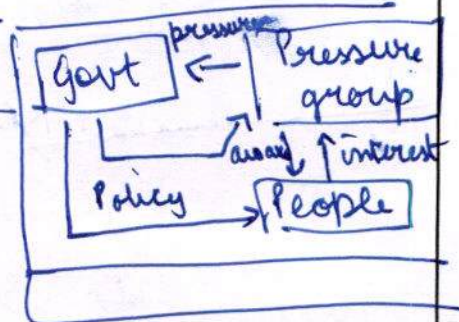 pressure
Govt
Pressure
group
aware
interest
Policy
People